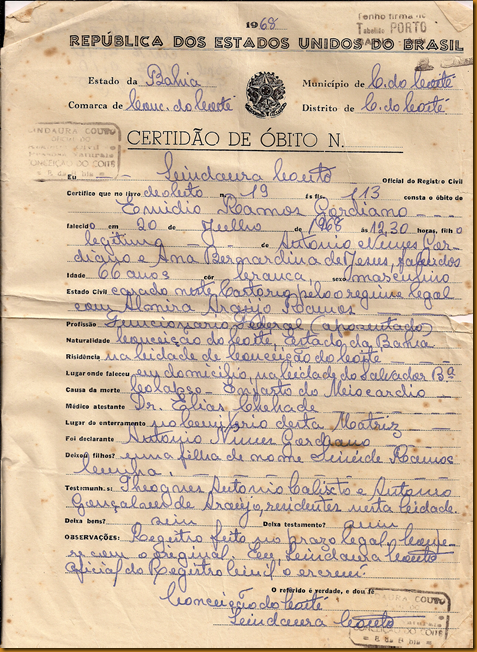 1968
Tenho firma no
Tabelião PORTO
REPÚBLICA DOS ESTADOS UNIDOS DO BRASIL
Estado da Bahia Município de C. do Coité
Comarca de Conc. do Coité Distrito de C. do Coité
LINDAURA COUTO
OFICIAL DO
CONCEIÇÃO DO COITÉ
CERTIDÃO DE ÓBITO N.
Eu Lindaura Couto Oficial do Registro Civil
Certifico que no livro de óbito n. 19 às fls. 113 consta o óbito de
Emidio Ramos Gordiano
falecido em 20 de Julho de 1968 às 12,30 horas, filho
legítimo de Antonio Nunes Gor-
diano e Ana Bernardina de Jesus, falecidos
Idade 66 anos côr branca sexo masculino
Estado Civil casado neste Cartorio pelo regime legal
com Almira Araujo Ramos
Profissão Funcionario Federal (aposentado)
Naturalidade Conceição do Coité, Estado da Bahia
Risidência na cidade de Conceição do Coité
Lugar onde faleceu em domicilio, na cidade do Salvador Bª
Causa da morte Colapso - Enfarto do Meiocardio
Médico atestante Dr. Elias Chehade
Lugar do enterramento no Cemiterio desta Matriz
Foi declarante Antonio Nunes Gordiano
Deixou filhos? uma filha de nome Ramos
Testemunh.s: Antonio Calixto e Antonio
Gonçalves de Araujo, residentes nesta cidade.
Deixa bens? sim Deixa testamento?
OBSERVAÇÕES: Registro feito no prazo legal, Confe-
ri com o original. Eu Lindaura Couto
Oficial do Registro Civil o escrevi.
O referido é verdade, e dou fé
Conceição do Coité
Lindaura Couto
LINDAURA COUTO
CONCEIÇÃO DO COITÉ